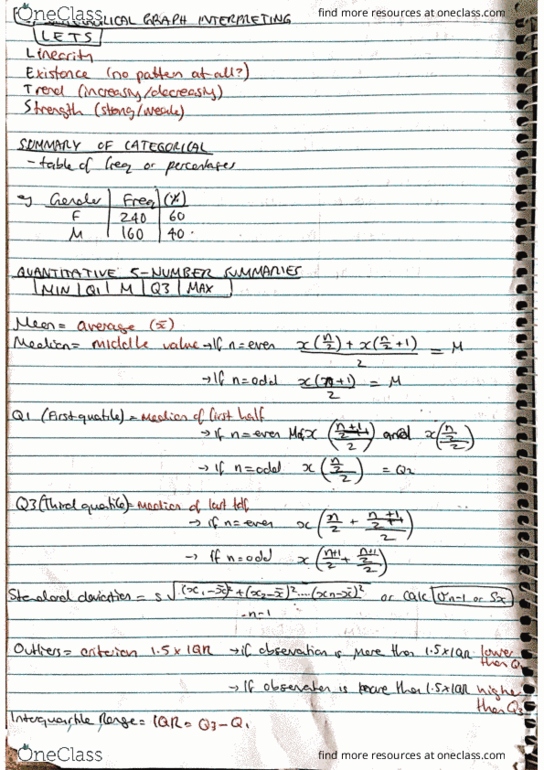 OneClass
find more resources at oneclass.com
GRAPH INTERPRETING
LETS
Linearity
Existence (no pattern at all?)
Trend (increasing/decreasing)
Strength (strong/weak)
SUMMARY OF CATEGORICAL
- table of freq or percentages
eg Gender | Freq | (%)
F | 240 | 60
M | 160 | 40
QUANTITATIVE 5-NUMBER SUMMARIES
MIN | Q1 | M | Q3 | MAX
Mean = average (x̄)
Median = middle value → If n=even (x(n/2) + x(n/2+1))/2 = M
→ If n=odd x(n+1)/2 = M
Q1 (First quatile) = median of first half
→ If n=even x and x((n/2)/2)
→ If n=odd x((n/2)/2) = Q2
Q3 (Third quatile) = median of last
→ if n=even x(n/2 +
→ if n=odd x((n+1)/2 + ((n+1)/2)/2)
Standard deviation = s √((x₁-x̄)²+(x₂-x̄)²...(xn-x̄)²)/(n-1) or calc σn-1 or Sx
Outliers = criterion 1.5 x IQR → if observation is more than 1.5 x IQR lower
than Q1
→ If observation is more than 1.5 x IQR higher
than Q3
Interquartile Range = IQR = Q3 - Q1
OneClass
find more resources at oneclass.com